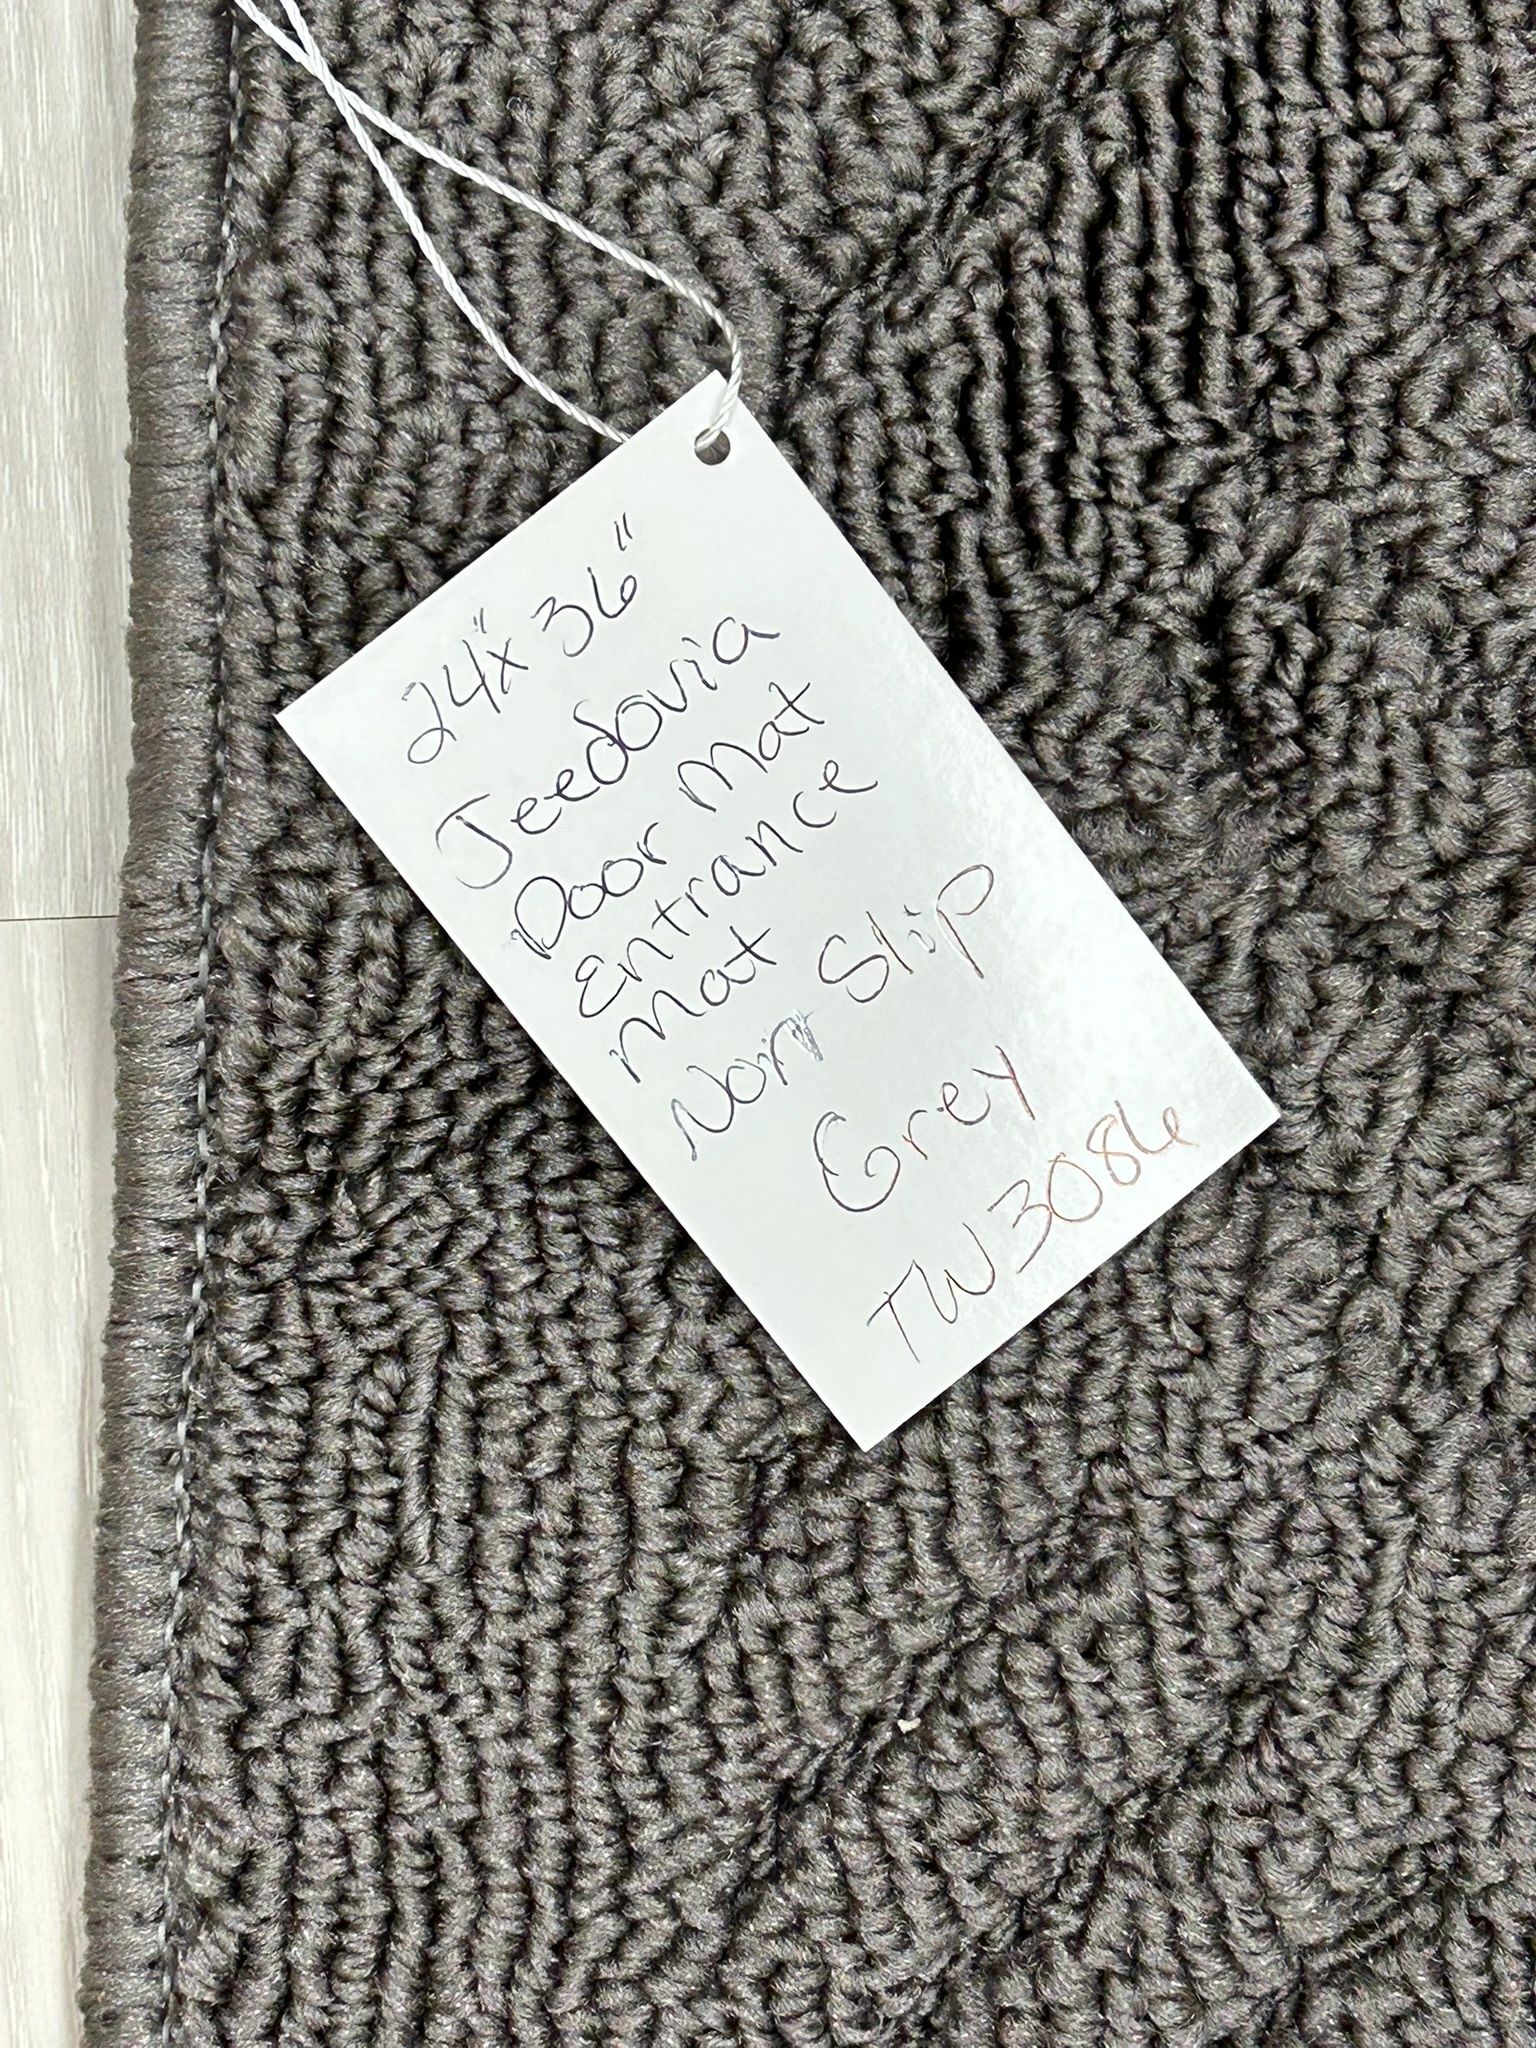 24"x 36"
Jeedovia
Door Mat
Entrance
Mat
Non Slip
Grey
TW3086